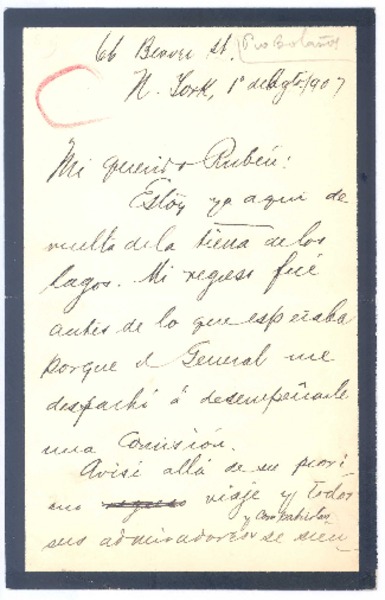 66 Beaver St.
Pio Bolaños
N. York, 1º de Agto/907
Mi querido Rubén:
Estoy ya aquí de
vuelta de la tierra de los
lagos. Mi regreso fué
antes de lo que esperaba
porque el General me
despachó á desempeñarle
una Comisión.
Avisé allá de su próxi-
mo regreso viaje y todos
y compatriotas
sus admiradores se sien-